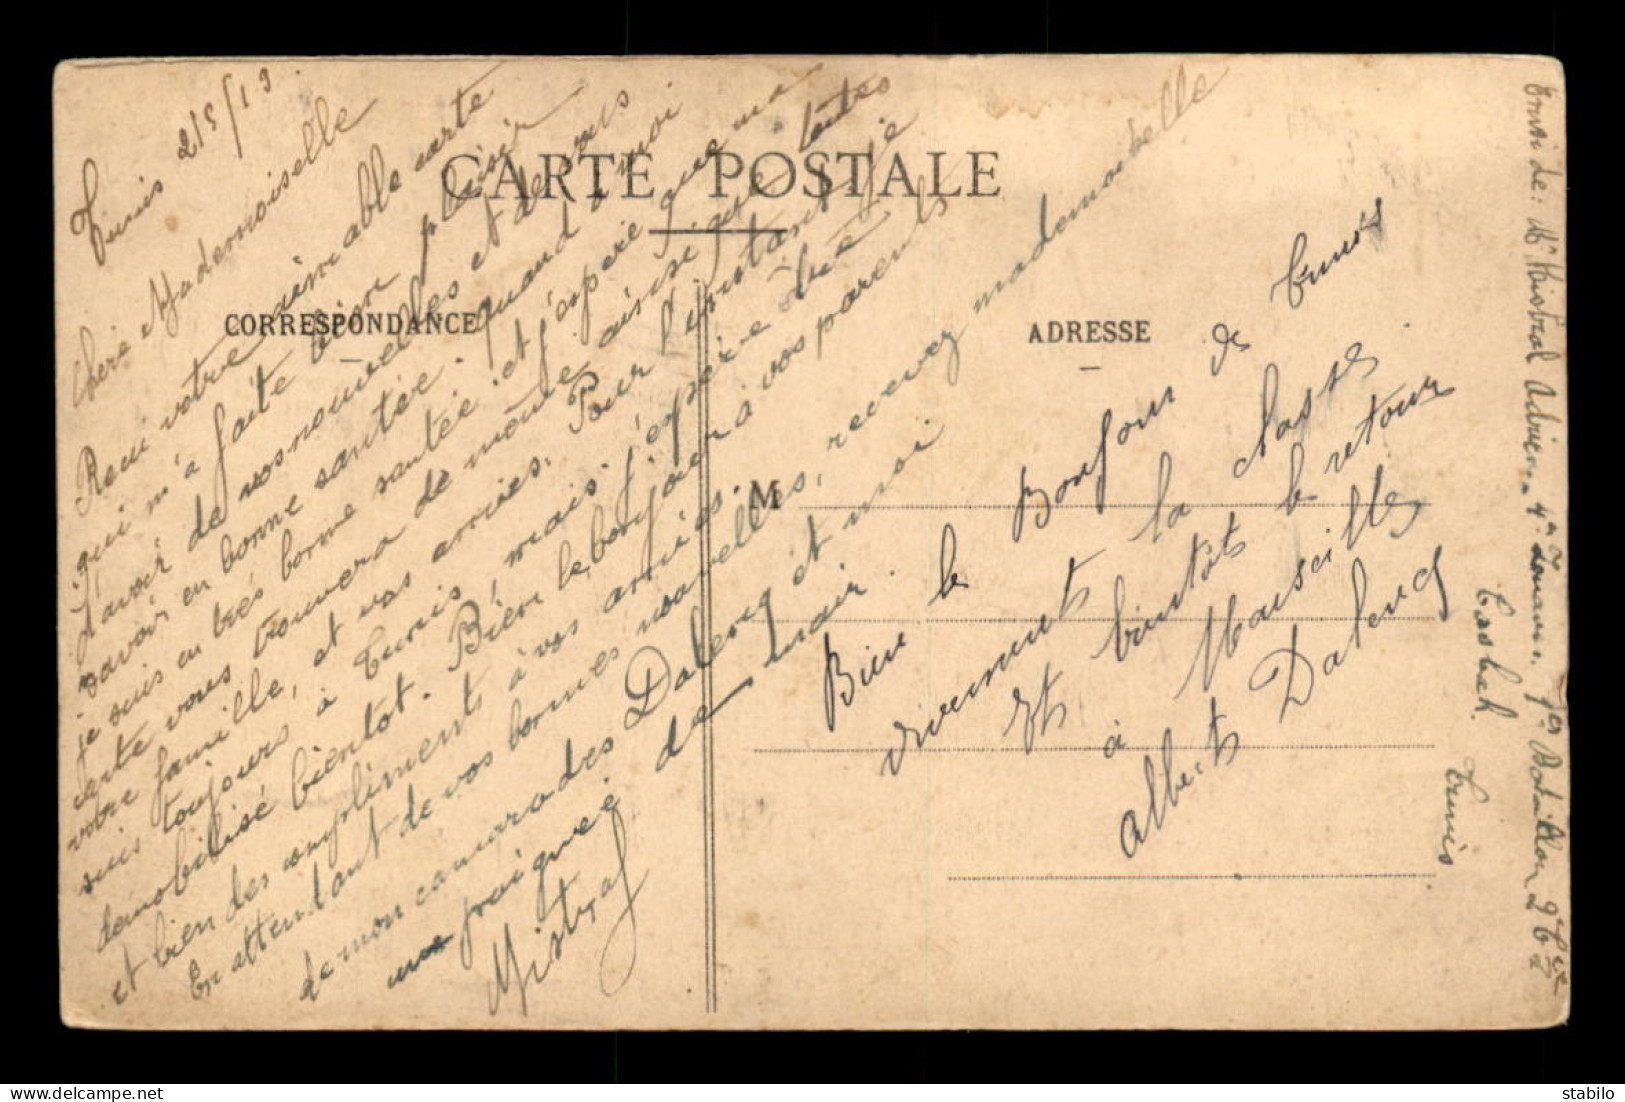 CARTE POSTALE
CORRESPONDANCE
ADRESSE
M
Tunis 2/5/19
Chère Mademoiselle
Recu votre aimable carte
qui m'a faite bien plaisir
d'avoir de vos nouvelles et de vous
savoir en bonne santée. quand a moi
je suis en trés bonne santée. et j'espère que ma
carte vous trouvera de même ainsi que toutes
votre famille, et vos amies. Pour l'instant je
suis toujours à Tunis, mais j'espère être
demobilisé bientot. Bien le bonjour a vos parents
et bien des compliments à vos amies.
En attendant de vos bonnes nouvelles, recevez mademoiselle
de mon camarades Dalency et moi
une poignée de main.
Mistral
Bien le Bonjour de Tunis
vivements la classe
et bientôt le retour
à Marseille
Albert Dalency
Envoi de: Mr Mistral Adrien 4e Zouaves. Bataillon 2e Cie
Casbah.
Tunis